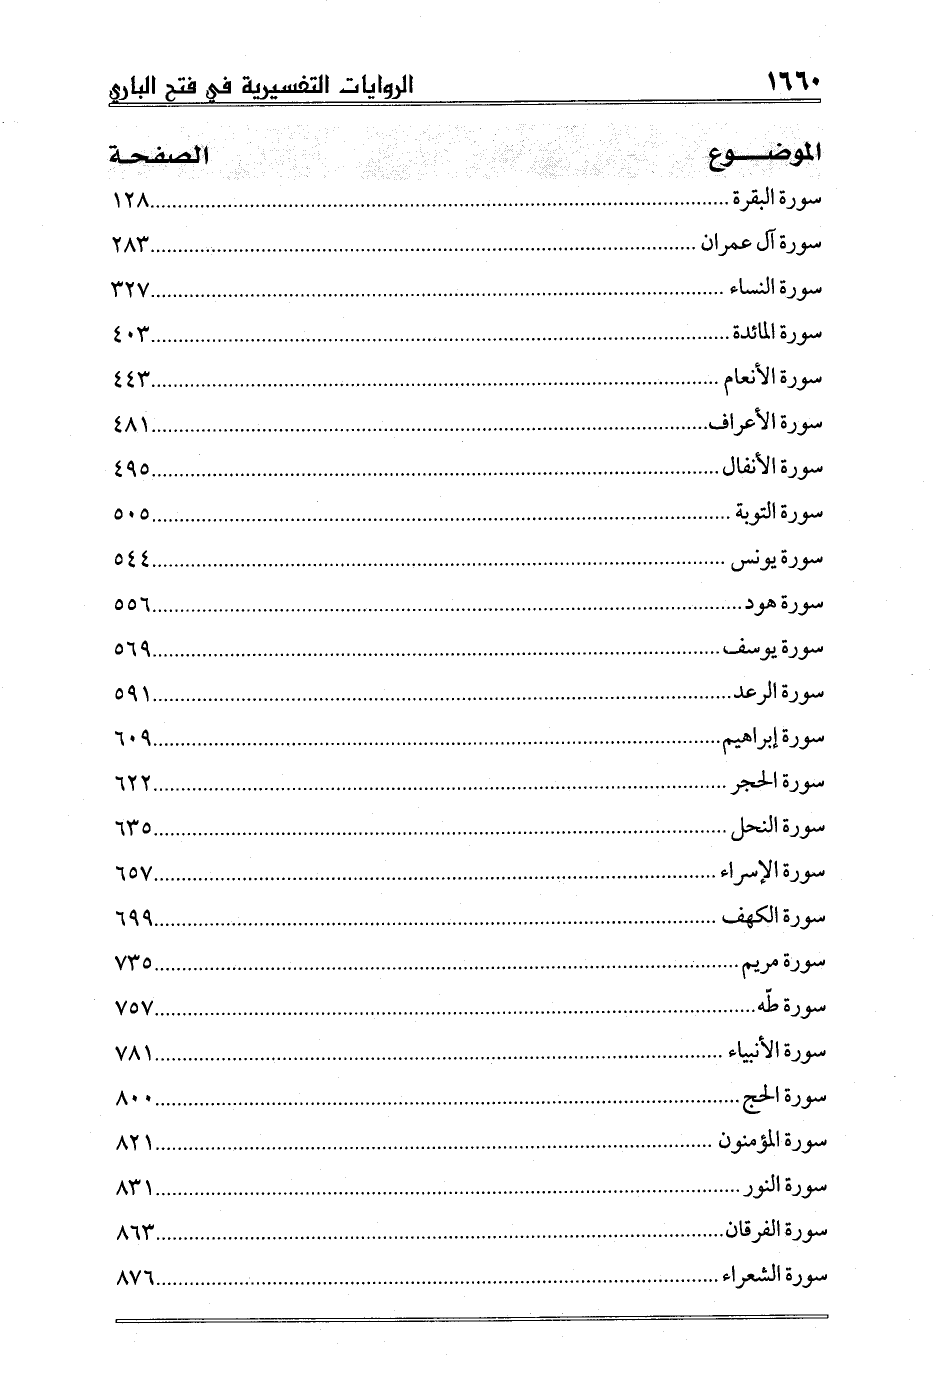 ١٦٦٠ الروايات التفسيرية في فتح الباري
الموضـــوع الصفحـة
سورة البقرة ١٢٨
سورة آل عمران ٢٨٣
سورة النساء ٣٢٧
سورة المائدة ٤٠٣
سورة الأنعام ٤٤٣
سورة الأعراف ٤٨١
سورة الأنفال ٤٩٥
سورة التوبة ٥٠٥
سورة يونس ٥٤٤
سورة هود ٥٥٦
سورة يوسف ٥٦٩
سورة الرعد ٥٩١
سورة إبراهيم ٦٠٩
سورة الحجر ٦٢٢
سورة النحل ٦٣٥
سورة الإسراء ٦٥٧
سورة الكهف ٦٩٩
سورة مريم ٧٣٥
سورة طّه ٧٥٧
سورة الأنبياء ٧٨١
سورة الحج ٨٠٠
سورة المؤمنون ٨٢١
سورة النور ٨٣١
سورة الفرقان ٨٦٣
سورة الشعراء ٨٧٦